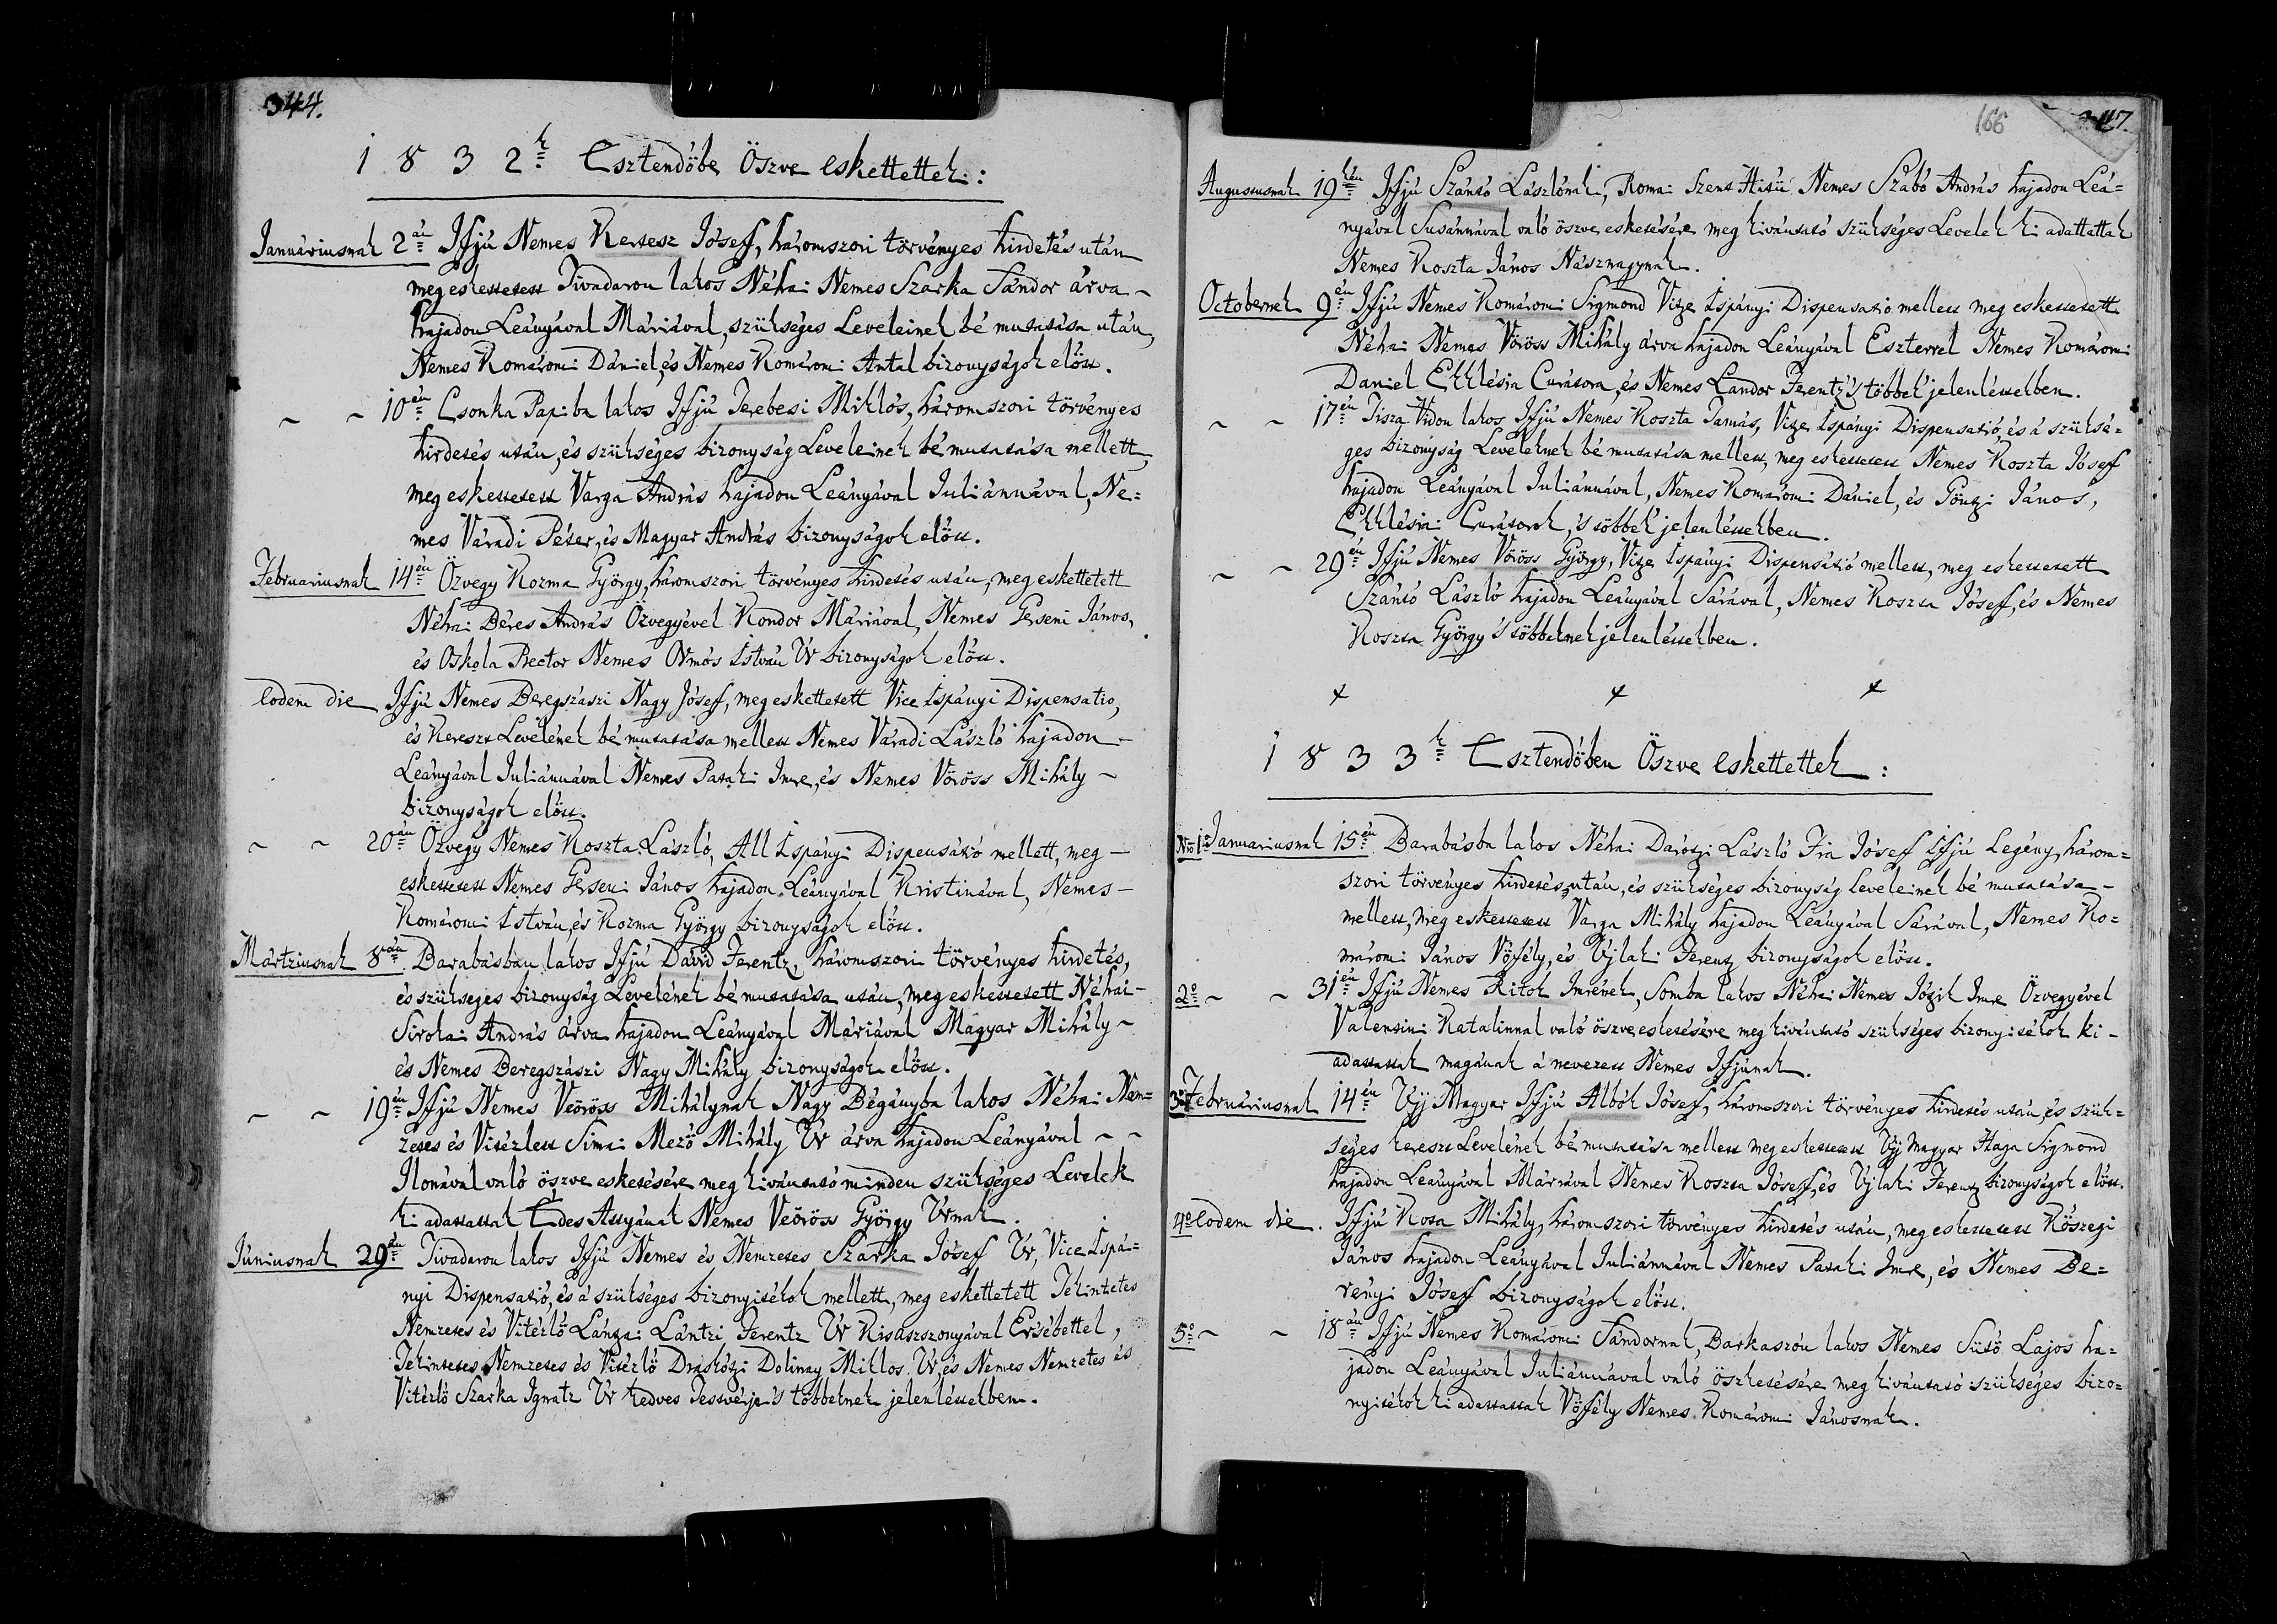 344.
1 8 3 2k Esztendőbe Öszve eskettettek:
Januáriusnak 2án Ifjú Nemes Kertész Jósef, háromszori törvényes hirdetés után
meg eskettetett Tivadaron lakos Néhai Nemes Szarka Sándor árva
hajadon Leányával Máriával, szükséges Leveleinek bé mutatása után,
Nemes Komáromi Dániel, és Nemes Komáromi Antal bizonyságok előtt.
~ ~ 10én Csonka Papiba lakos Ifjú Terebesi Miklós, háromszori törvényes
hirdetés után, és szükséges bizonyság Leveleinek bé mutatása mellett,
meg eskettetett Varga András hajadon Leányával Juliánnával, Ne=
mes Váradi Péter, és Magyar András bizonyságok előtt.
Februariusnak 14én Özvegy Kozma György, háromszori törvényes hirdetés után, meg eskettetett
Néhai Béres András Özvegyével Kondor Máriával, Nemes Gerseni János,
és Oskola Rector Nemes Olmós István Úr bizonyságok előtt.
eodem die Ifjú Nemes Beregszászi Nagy Jósef, meg eskettetett Vice Ispányi Dispensatio,
és Kereszt Levelének bé mutatása mellett Nemes Váradi László hajadon
Leányával Juliánnával Nemes Pataki Imre, és Nemes Vörös Mihály
bizonyságok előtt.
~ ~ 20án Özvegy Nemes Koszta László, All Ispányi Dispensátió mellett, meg
eskettetett Nemes Gerseni János hajadon Leányával Kristinával, Nemes
Komáromi István, és Kozma György bizonyságok előtt.
Mártziusnak 8án Barabásban lakos Ifjú Dávid Ferentz, háromszori törvényes hirdetés,
és szükseges bizonyság Levelének bé mutatása után, meg eskettetett Néhai
Sirokai András árva hajadon Leányával Máriával Magyar Mihály
és Nemes Beregszászi Nagy Mihály bizonyságok előtt.
~ ~ 19én Ifjú Nemes Veöröss Mihálynak Nagy Bégányba lakos Néhai Nem=
zetes és Vitézlett Simai Mező Mihály Úr árva hajadon Leányával ~ ~
Ilonával való öszve eskettésére meg kivántató minden szükséges Levelek
ki adattattak Édes Attyának Nemes Veöröss György Úrnak.
Júniusnak 29én Tivadaron lakos Ifjú Nemes és Nemzetes Szarka Jósef Úr, Vice Ispá=
nyi Dispensatió, és á szükséges bizonyitékok mellett, meg eskettetett Tekintetes
Nemzetes és Vitézlő Lántzi Lántzi Ferentz Úr Kisaszszonyával Ersébettel,
Tekintetes Nemzetes és Vitézlő Draskótzi Dolinay Miklos Úr, és Nemes Nemzetes és
Vitézlő Szarka Ignatz Úr kedves Testvérje 's többeknek jelenléttekben.
166
347.
Augustusnak 19kén Ifjú Szántó Lászlónak, Romai Szent Hitü Nemes Szabó András hajadon Leá=
nyával Susánnával való öszve eskettésére meg kivántató szükséges Levelek ki adattattak
Nemes Koszta János Násznagynak.
Octobernek 9én Ifjú Nemes Komáromi Sigmond Vitze Ispányi Dispensatió mellett meg eskettetett
Néhai Nemes Vöröss Mihály árva hajadon Leányával Eszterrel Nemes Komáromi
Daniel Ekklésia Curátora, és Nemes Landor Ferentz 's többek' jelenléttekben.
~ ~ 17én Tisza Vidon lakos Ifjú Nemes Koszta Tamás, Vitze Ispányi Dispensatió, és á szüksé=
ges bizonyság Leveleknek bé mutatása mellett, meg eskettetett Nemes Koszta Jósef
hajadon Leányával Juliánnával, Nemes Komáromi Dániel, és Göntzi János,
Ekklésiai Curátorok, 's többek' jelenléttekben.
~ ~ 29én Ifjú Nemes Vöröss György, Vitze Ispányi Dispensátió mellett, meg eskettetett
Szántó László hajadon Leányával Sárával, Nemes Koszta Jósef, és Nemes
Koszta György 's többeknek jelenléttekben.
x x x
1 8 3 3k Esztendőben Öszve eskettettek:
No 1o Januariusnak 15én Barabásba lakos Néhai Darótzi László Fia Jósef Ifjú Legény, három=
szori törvényes hirdetés után, és szükséges bizonyság leveleinek bé mutatása
mellett, meg eskettetett Varga Mihály hajadon Leányával Sárával, Nemes Ko=
máromi János Vőfély, és Ujlaki Ferentz bizonyságok előtt.
2o ~ ~ 31én Ifjú Nemes Ritók Imrének, Somba lakos Néhai Nemes Józik Imre Özvegyével
Valensini Katalinnal való öszve eskettésére meg kivántató szükséges bizonyitékok ki
adattattak magának á nevezett Nemes Ifjúnak.
3o Februáriusnak 14én Uj Magyar Ifjú Albók Jósef, háromszori törvényes hirdetés után, és szük=
séges kereszt Levelének bé mutatása mellett meg eskettetett Uj Magyar Haga Sigmond
hajadon Leányával Máriával Nemes Koszta Jósef, és Ujlaki Ferentz bizonyságok előtt.
4o eodem die. Ifjú Kosa Mihály, háromszori törvényes hirdetés után, meg eskettetett Kőszegi
János hajadon Leányával Juliánnával Nemes Pataki Imre, és Nemes Be=
rényi Jósef bizonyságok előtt.
5o ~ ~ 18án Ifjú Nemes Komáromi Sándornak, Barkaszón lakos Nemes Sütő Lajos ha=
jadon Leányával Juliánnával való öszketésére meg kivántató szükséges bizo=
nyitékok ki adattattak Vőfély Nemes Komáromi Jánosnak.